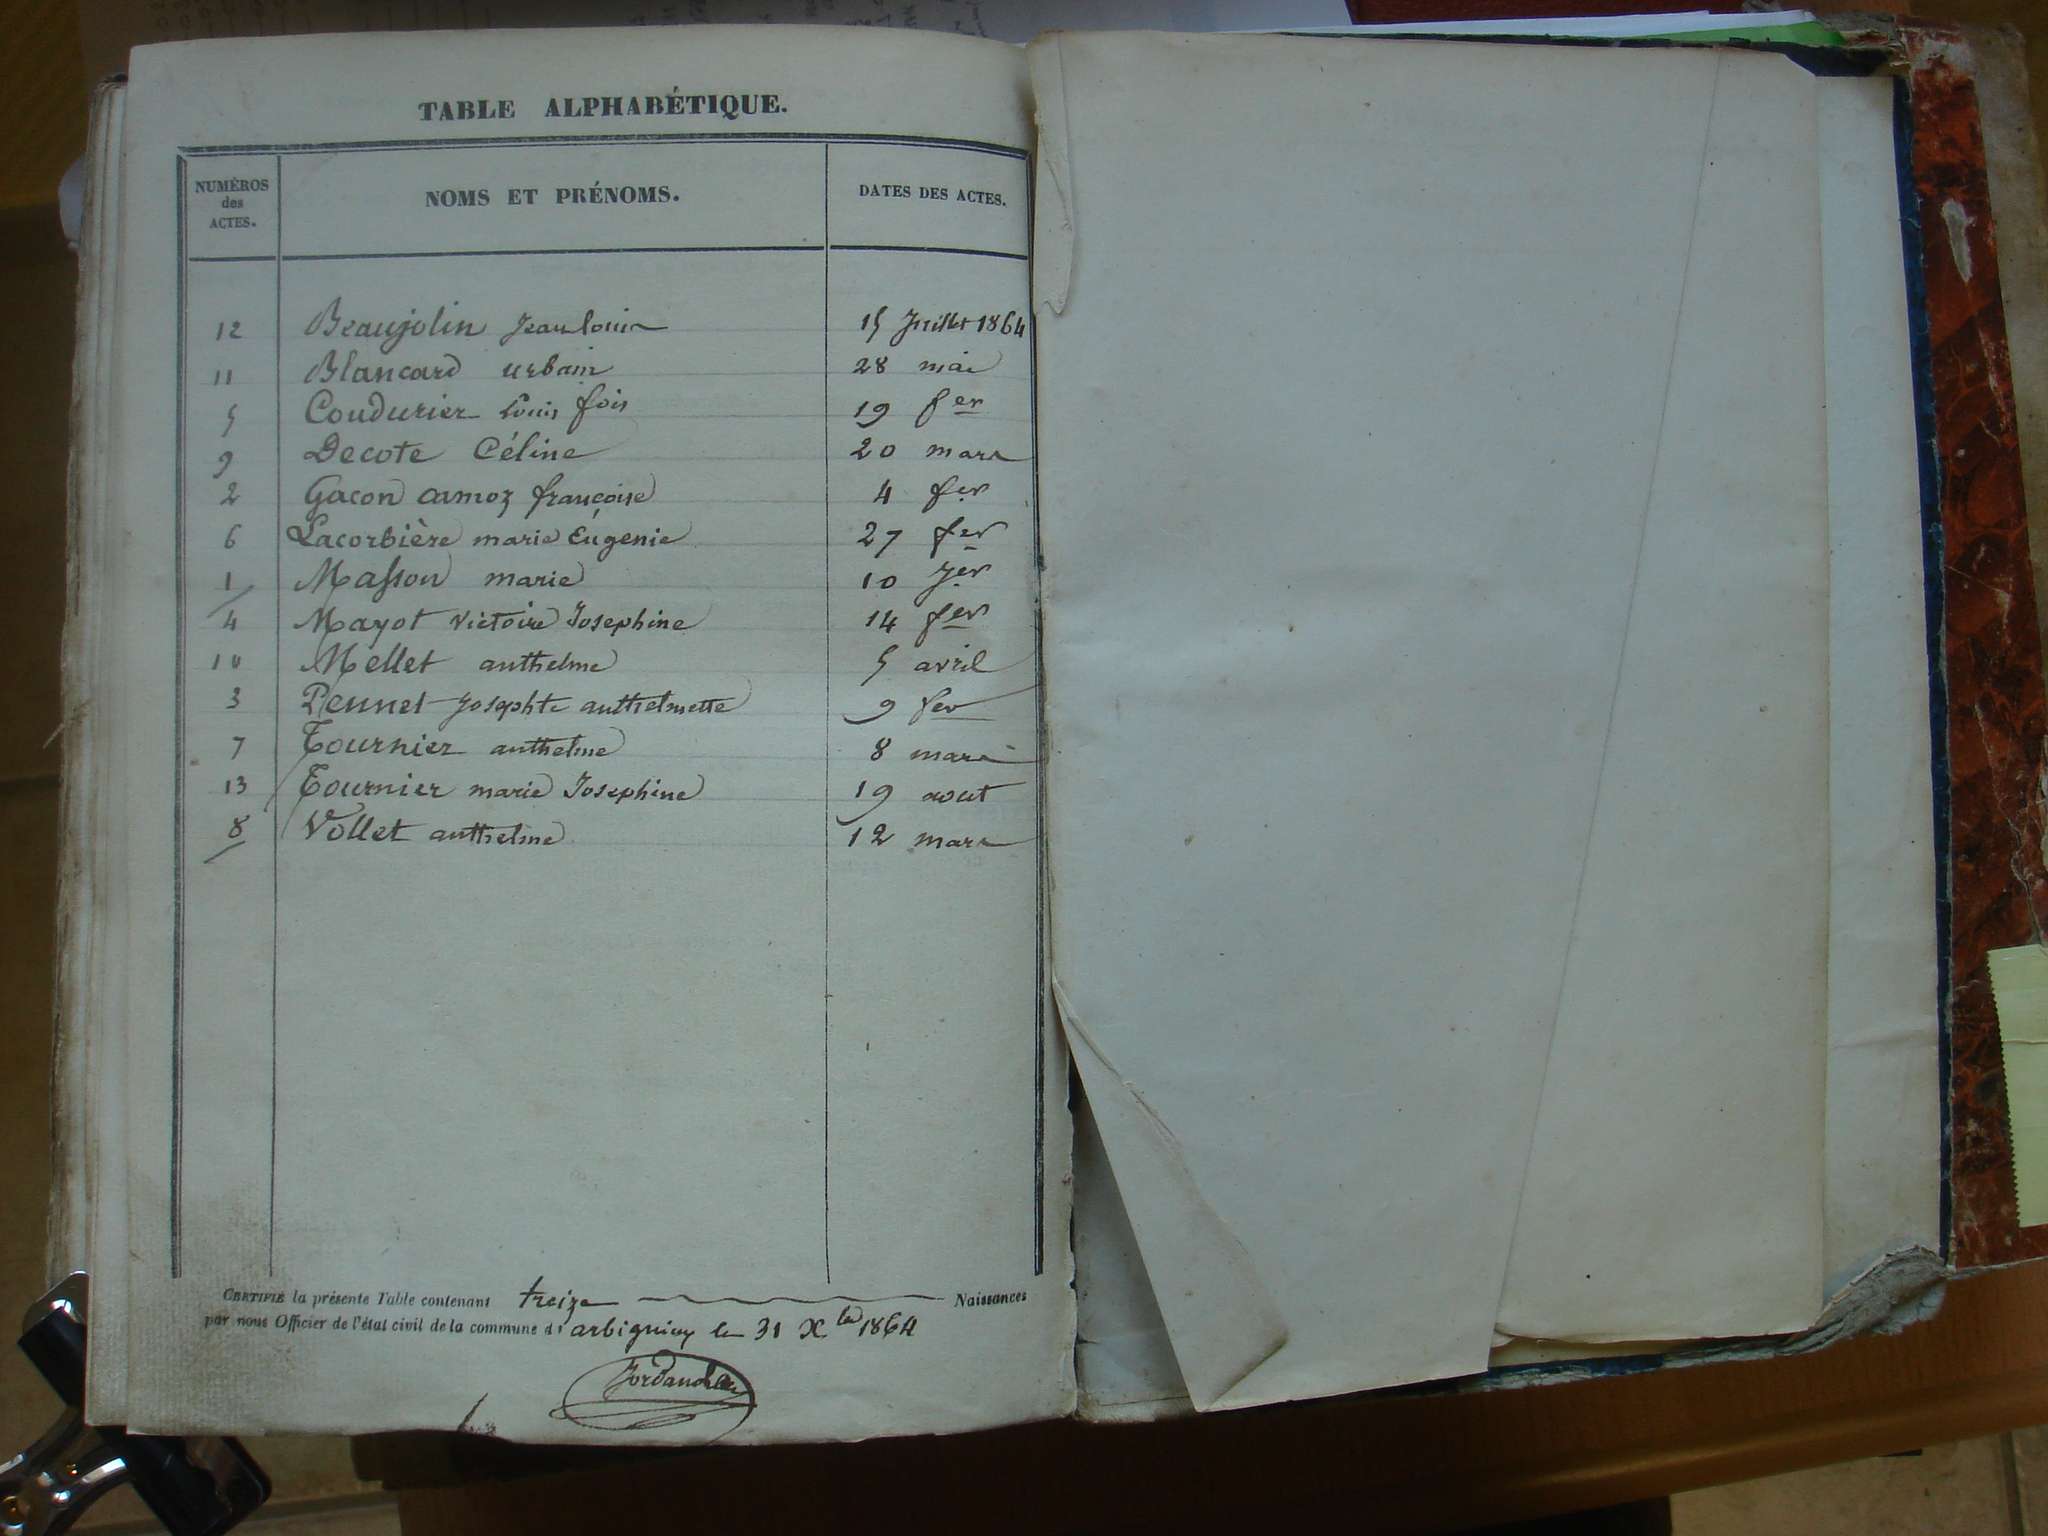 TABLE ALPHABÉTIQUE.
NUMÉROS des ACTES. NOMS ET PRÉNOMS. DATES DES ACTES.
12 Beaujolin Jean louis 15 Juillet 1864
11 Blancard urbain 28 mai
5 Coudurier Louis fois 19 fer
9 Decote Céline 20 mars
2 Gacon camoz françoise 4 fer
6 Lacorbière marie Eugenie 27 fer
1 Masson marie 10 Jer
4 Mayot victoire Josephine 14 fer
10 Mellet anthelme 5 avril
3 Pennet Josephte anthelmette 9 fer
7 Tournier anthelme 8 mars
13 Tournier marie Josephine 19 aout
8 Vollet anthelme 12 mars
CERTIFIÉ la présente Table contenant treize Naissances
par nous Officier de l'état civil de la commune d' arbignieu le 31 Xbre 1864